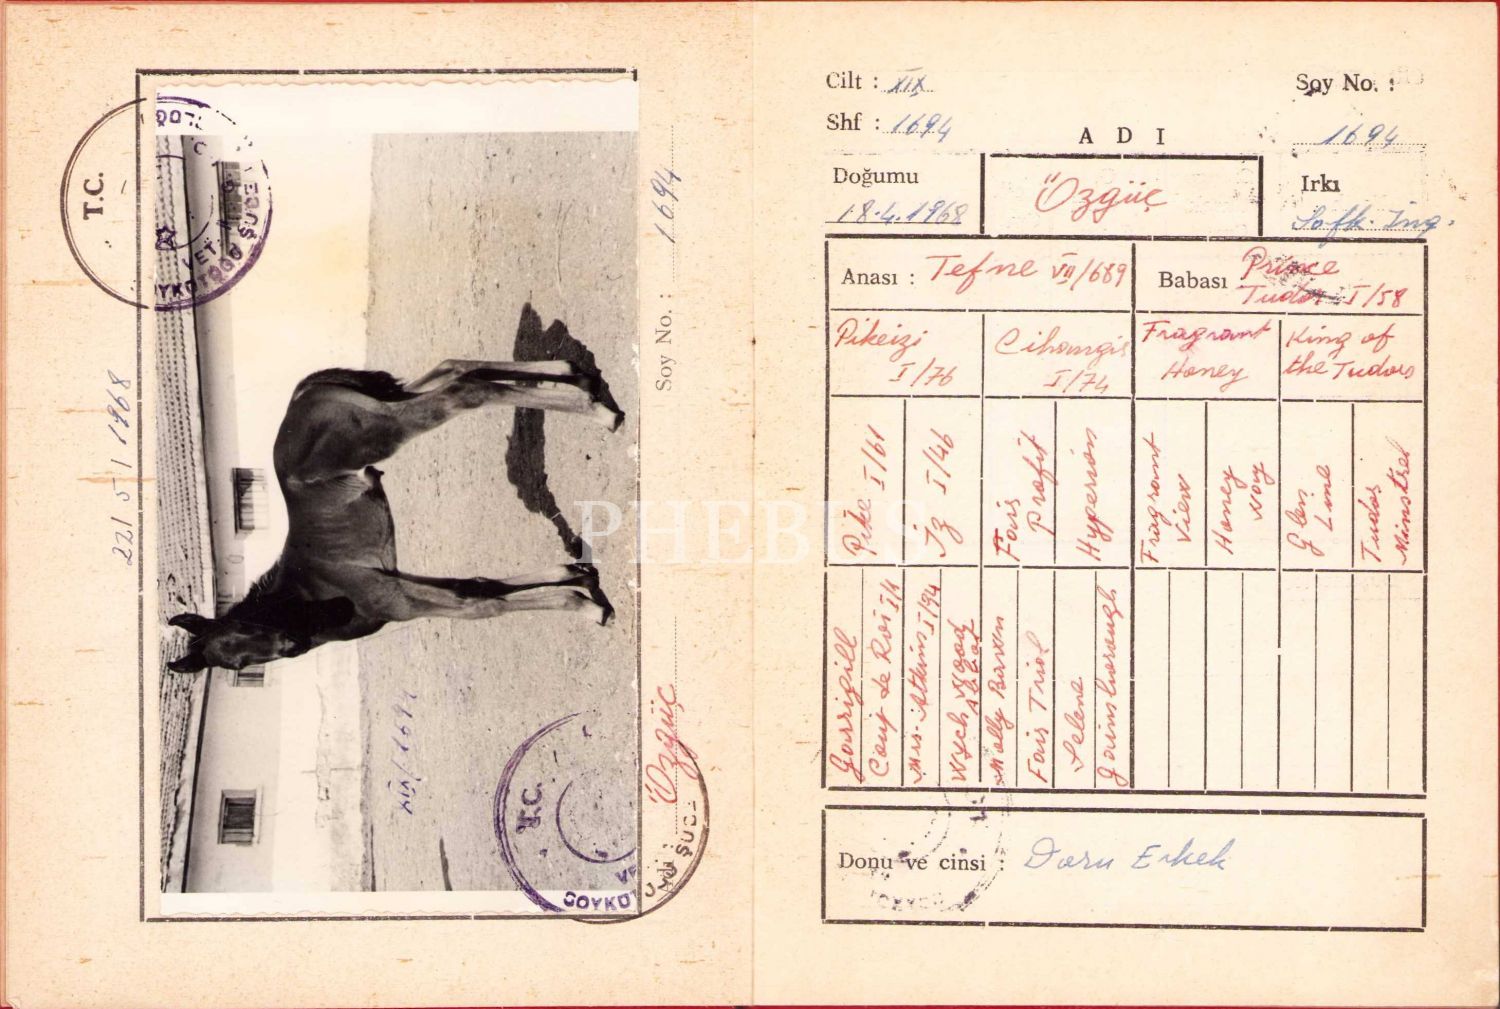 T.C.
22/5/1968
Soy No. : 1694
XIX/1694
T.C.
Özgüç
PHEBUS
Cilt : XIX
Shf : 1694
Soy No. :
1694
ADI
Doğumu
18.4.1968
Özgüç
Irkı
Safk. İng.
Anası : Tefne VII/689
Babası Prince
Tudor I/58
Pikeizi
I/76
Cihangir
I/74
Fragrant
Honey
King of
the Tudors
Pike I/61
İz I/46
Fair
Profit
Hyperion
Fragrant
View
Honey
way
Glen
Line
Tudor
Minstrel
Coup de Roi I/1
Mrs. Atkins I/94
Wych wood
Abbot
Molly Bawn
Fair Trial
Selene
Gainsborough
Donu ve cinsi : Doru Erkek